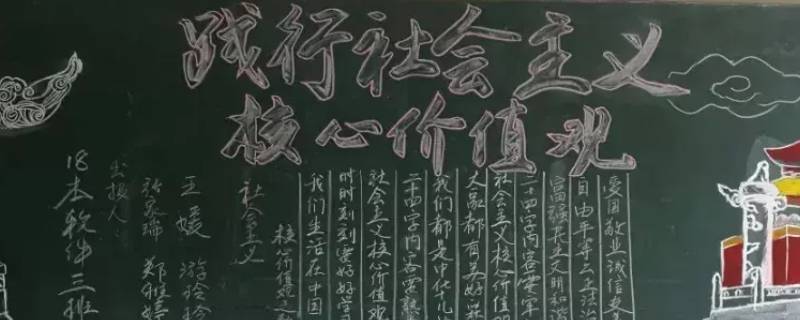 践行社会主义
核心价值观
社会主义
核价值
我们生活在中国
时时刻刻要好好学
社会主义核心价值观
二十四字内容要熟
我们都是中华儿
大家都有美好
社会主义核心价值观
二十四字内容要牢
富强民主文明和谐
自由平等公正法治
爱国敬业诚信友
出板人:
王媛 游玲玲
张家瑞 郑雅婷
18本软件三班